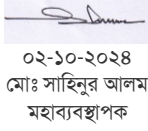 ০২-১০-২০২৪
মোঃ সাহিনুর আলম
মহাব্যবস্থাপক